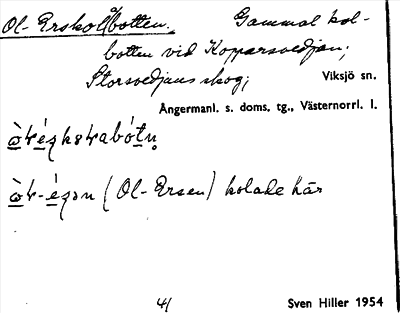 Ol-Erskol(s)botten., Gammal kol-
botten vid Kopparsvedjan;
Storsvedjans skog; Viksjö sn.
Ångermanl. s. doms. tg., Västernorrl. l.
(Ol-Ersen) kolade här
4/ Sven Hiller 1954